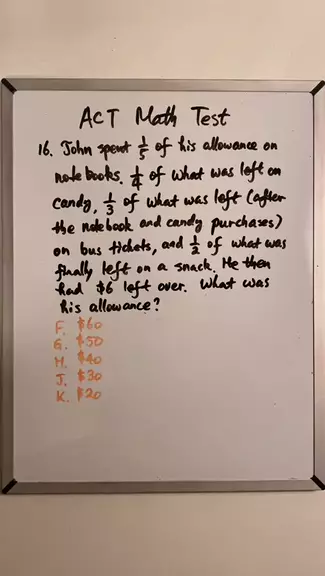 ACT Math Test
16. John spent 1/5 of his allowance on
notebooks, 1/4 of what was left on
candy, 1/3 of what was left (after
the notebook and candy purchases)
on bus tickets, and 1/2 of what was
finally left on a snack. He then
had $6 left over. What was
his allowance?
F. $60
G. $50
H. $40
J. $30
K. $20